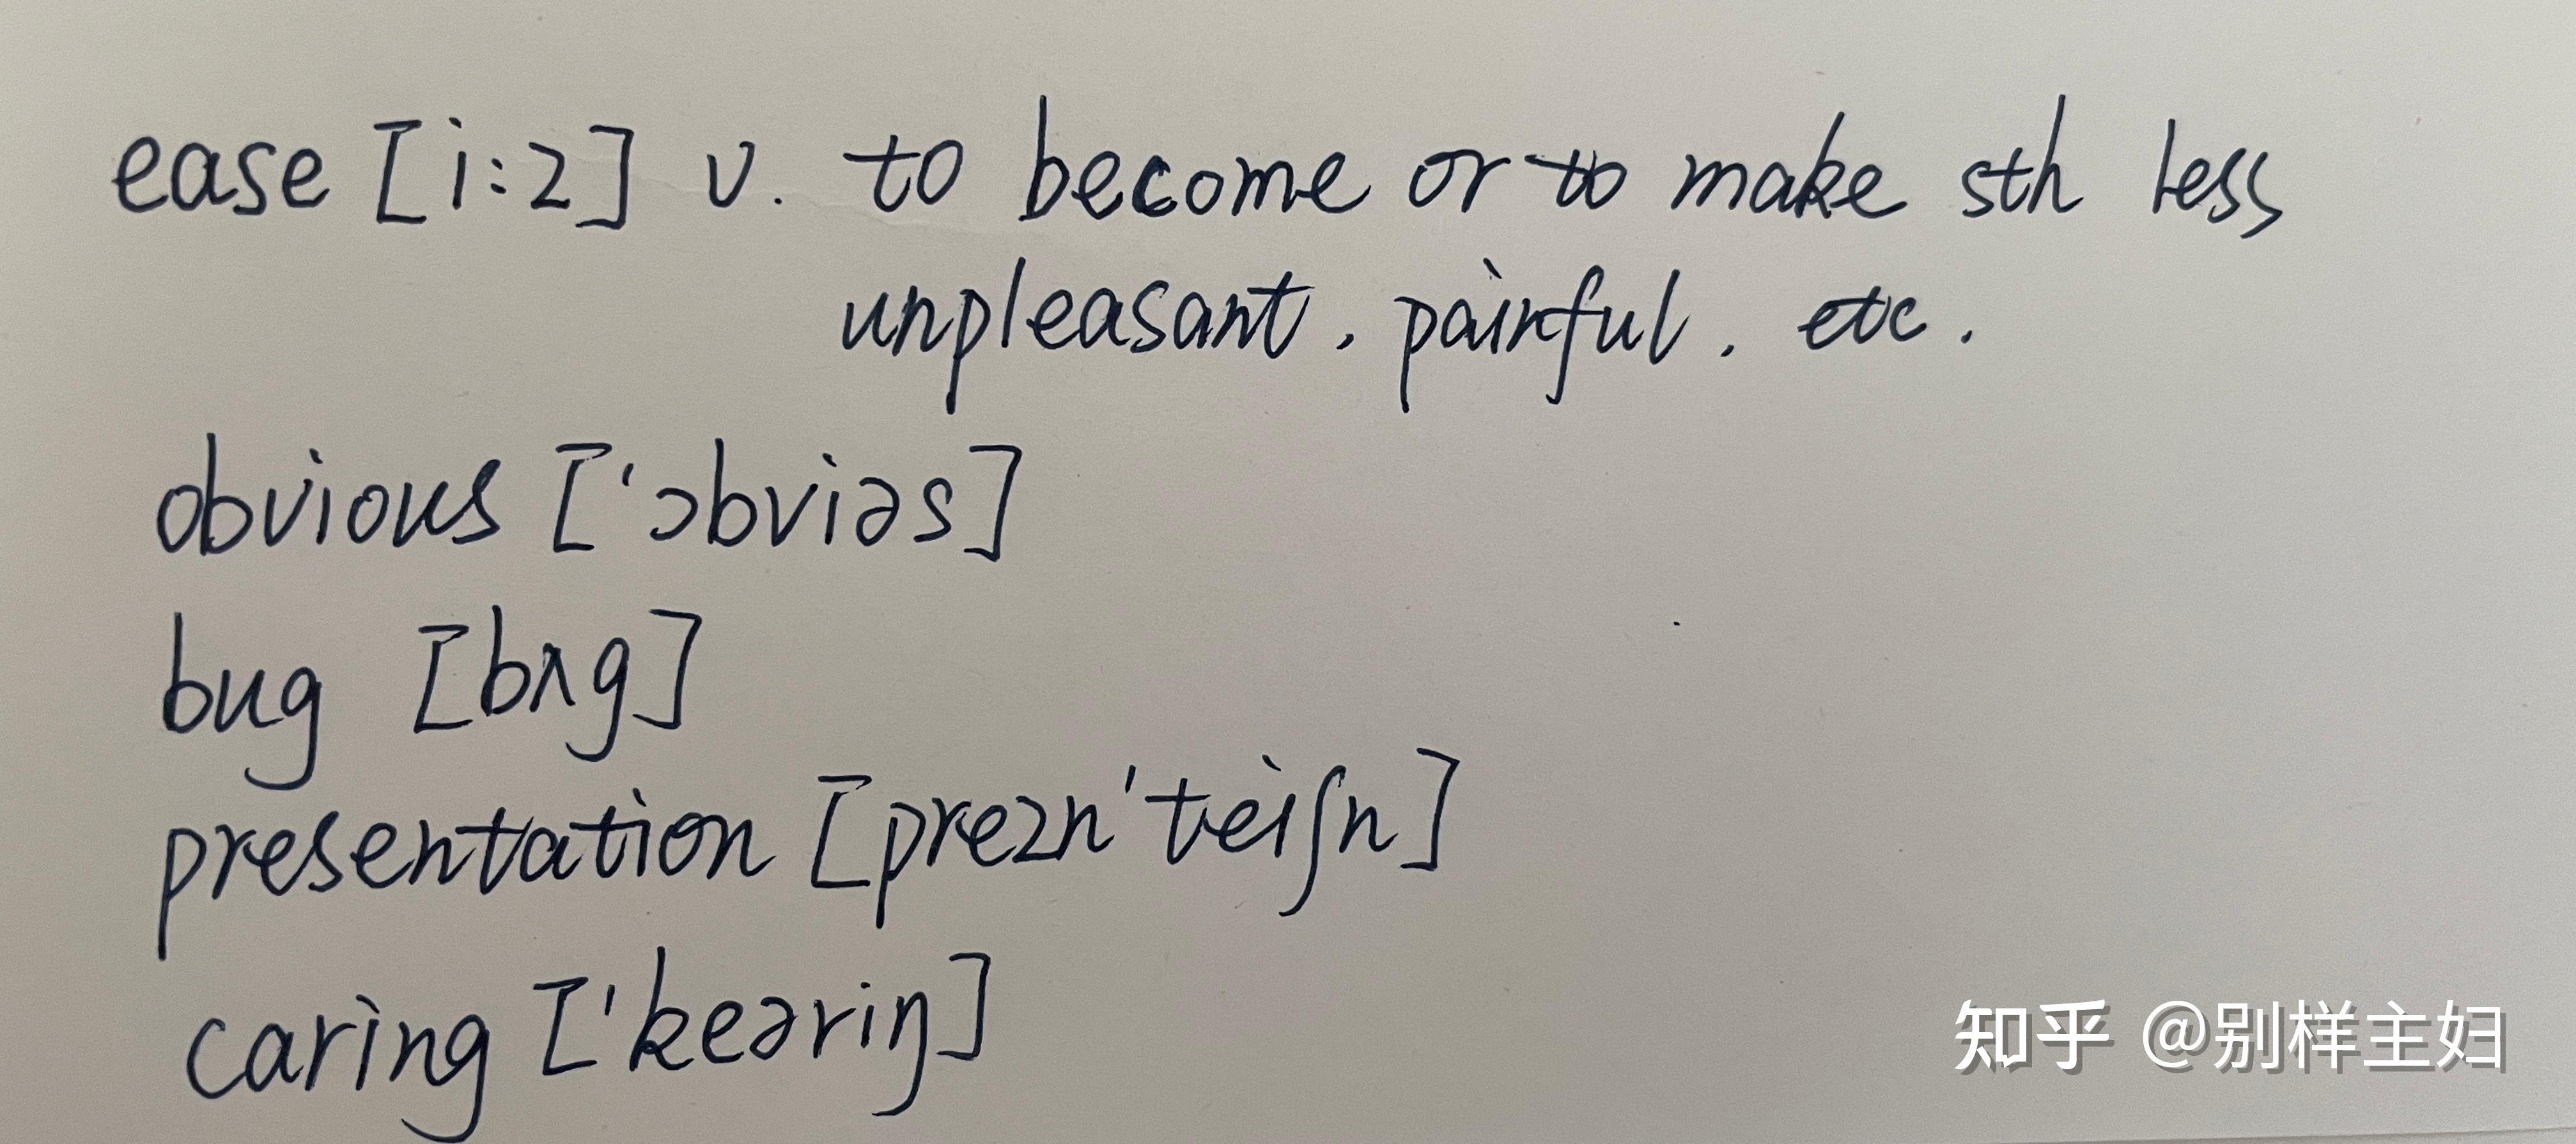 ease [i:z] v. to become or to make sth less
unpleasant, painful, etc.
obvious ['ɔbviəs]
bug [bʌg]
presentation [prezn'teiʃn]
caring ['keəriŋ]
知乎 @别样主妇